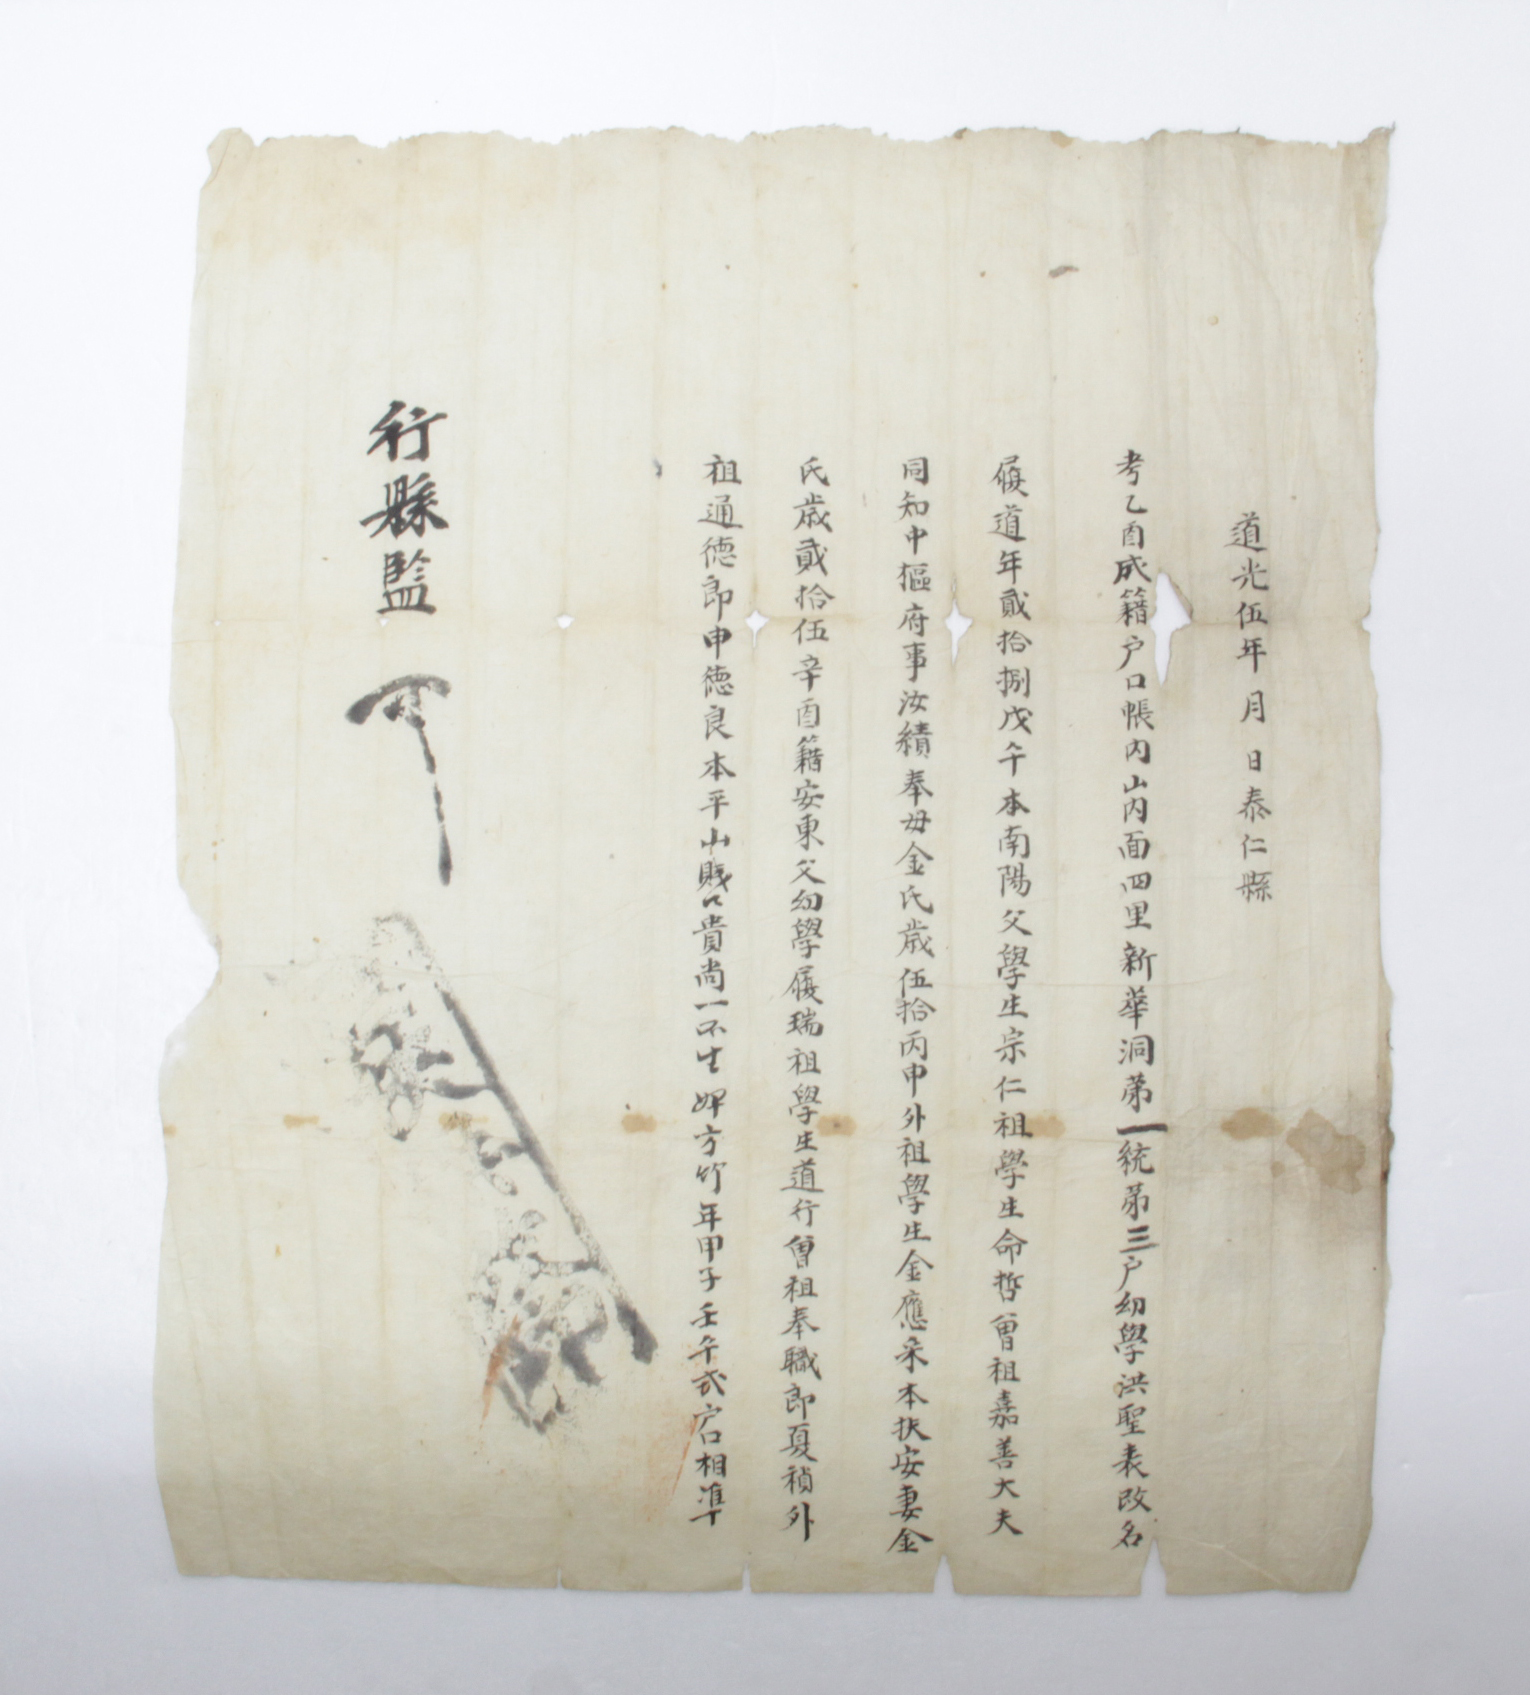 道光伍年 月 日泰仁縣
考乙酉成籍户口帳內山內面四里新華洞苐一統苐三户幼學洪聖表改名
履道年貳拾捌戊午本南陽父學生宗仁祖學生命哲曾祖嘉善大夫
同知中樞府事汝績奉母金氏歲伍拾丙申外祖學生金應采本扶安妻金
氏歲貳拾伍辛酉籍安東父幼學履瑞祖學生道行曾祖奉職郎夏禎外
祖通德郎申德良本平山賤口貴尚一不生婢方竹年甲子壬午戶口相準
行縣監